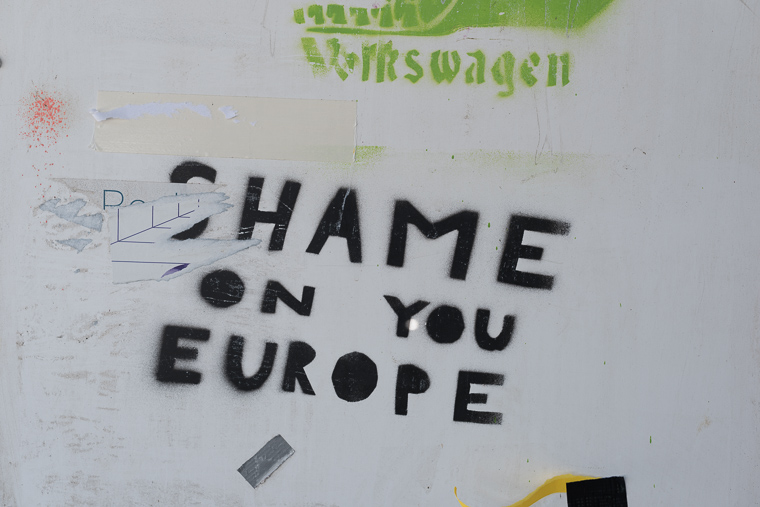 Volkswagen
SHAME
ON YOU
EUROPE